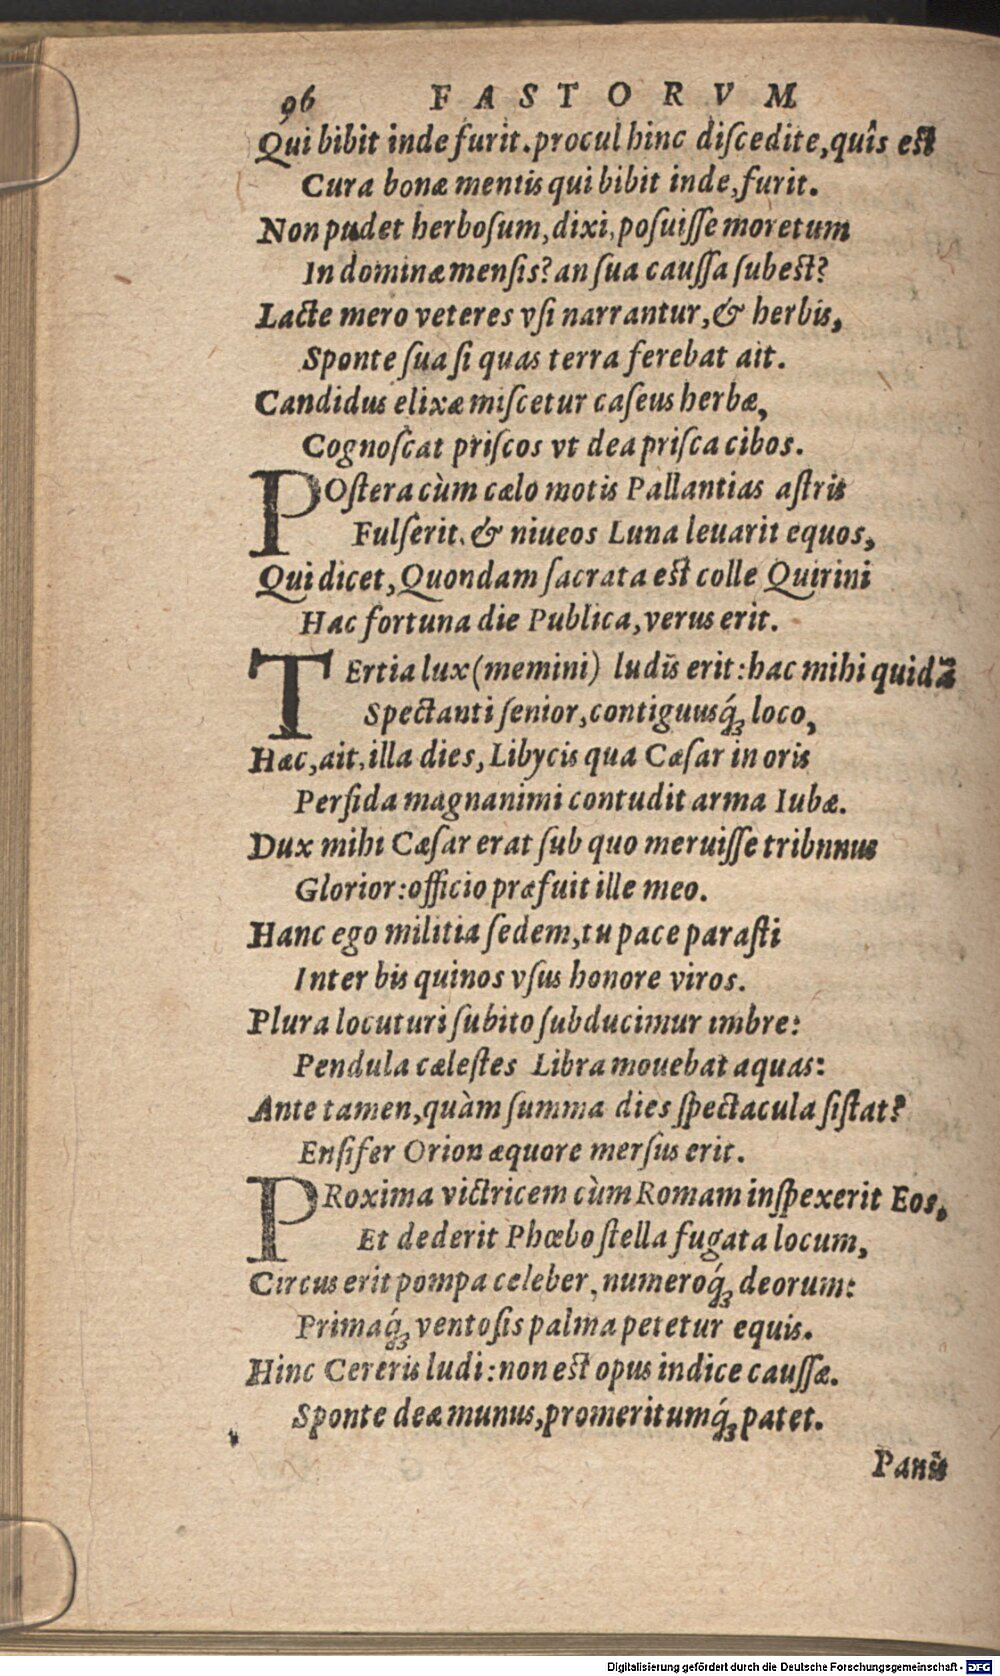 96 FASTORVM
Qui bibit inde furit. procul hinc diſcedite, quîs est
Cura bonæ mentis qui bibit inde, furit.
Non pudet herboſum, dixi, poſuiſſe moretum
In dominæ menſis? an ſua cauſſa ſubest?
Lacte mero veteres vſi narrantur, & herbis,
Sponte ſua ſi quas terra ferebat ait.
Candidus elixæ miſcetur caſeus herbæ,
Cognoſcat priſcos vt dea priſca cibos.
POſtera cùm cælo motis Pallantias aſtris
Fulſerit, & niueos Luna leuarit equos,
Qui dicet, Quondam ſacrata est colle Quirini
Hac fortuna die Publica, verus erit.
TErtia lux (memini) ludis erit: hac mihi quidã
Spectanti ſenior, contiguusq́ꝫ loco,
Hæc, ait, illa dies, Libycis qua Cæſar in oris
Perfida magnanimi contudit arma Iubæ.
Dux mihi Cæſar erat ſub quo meruiſſe tribnnus
Glorior: officio præfuit ille meo.
Hanc ego militia ſedem, tu pace paraſti
Inter bis quinos vſus honore viros.
Plura locuturi ſubito ſubducimur imbre:
Pendula cæleſtes Libra mouebat aquas:
Ante tamen, quàm ſumma dies ſpectacula ſiſtat?
Enſifer Orion æquore merſus erit.
PRoxima victricem cùm Romam inſpexerit Eos,
Et dederit Phœbo ſtella fugata locum,
Circus erit pompa celeber, numeroq́ꝫ deorum:
Primaq́ꝫ ventoſis palma petetur equis.
Hinc Cereris ludi: non est opus indice cauſſæ.
Sponte deæ munus, promeritumq́ꝫ patet.
Panis
Digitalisierung gefördert durch die Deutsche Forschungsgemeinschaft - DFG